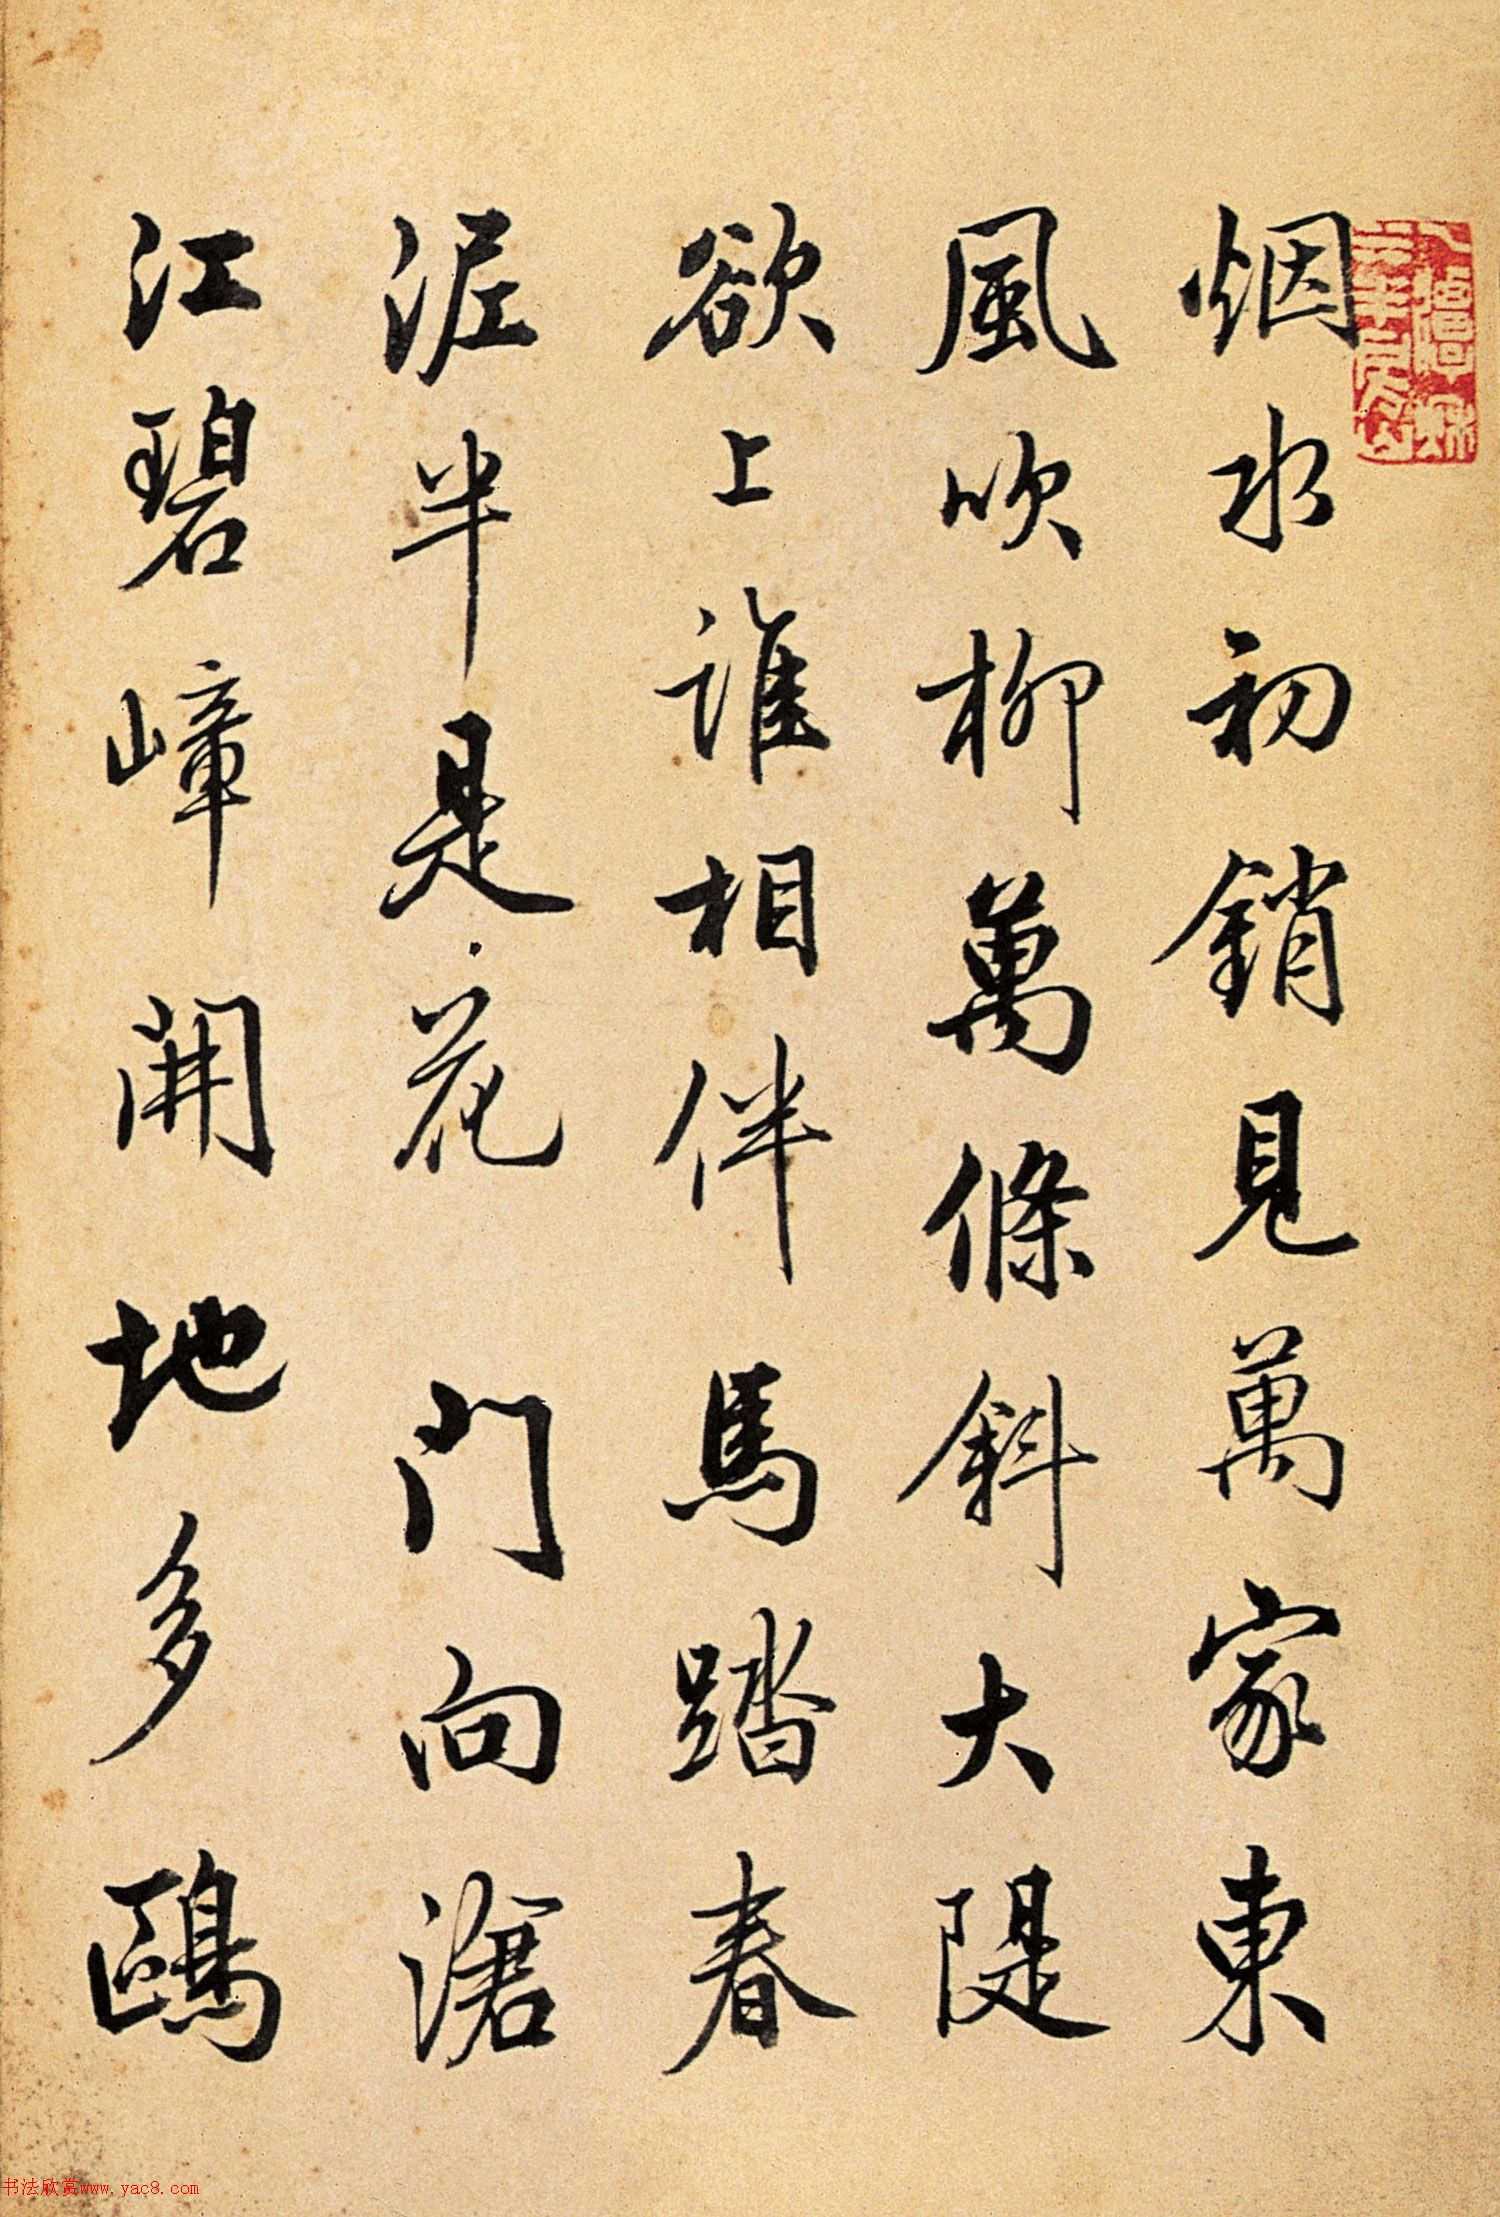 烟水初銷見萬家東
風吹柳萬條斜大隄
欲上誰相伴馬踏春
泥半是花門向滄
江碧嶂開地多鷗
书法欣赏www.yac8.com